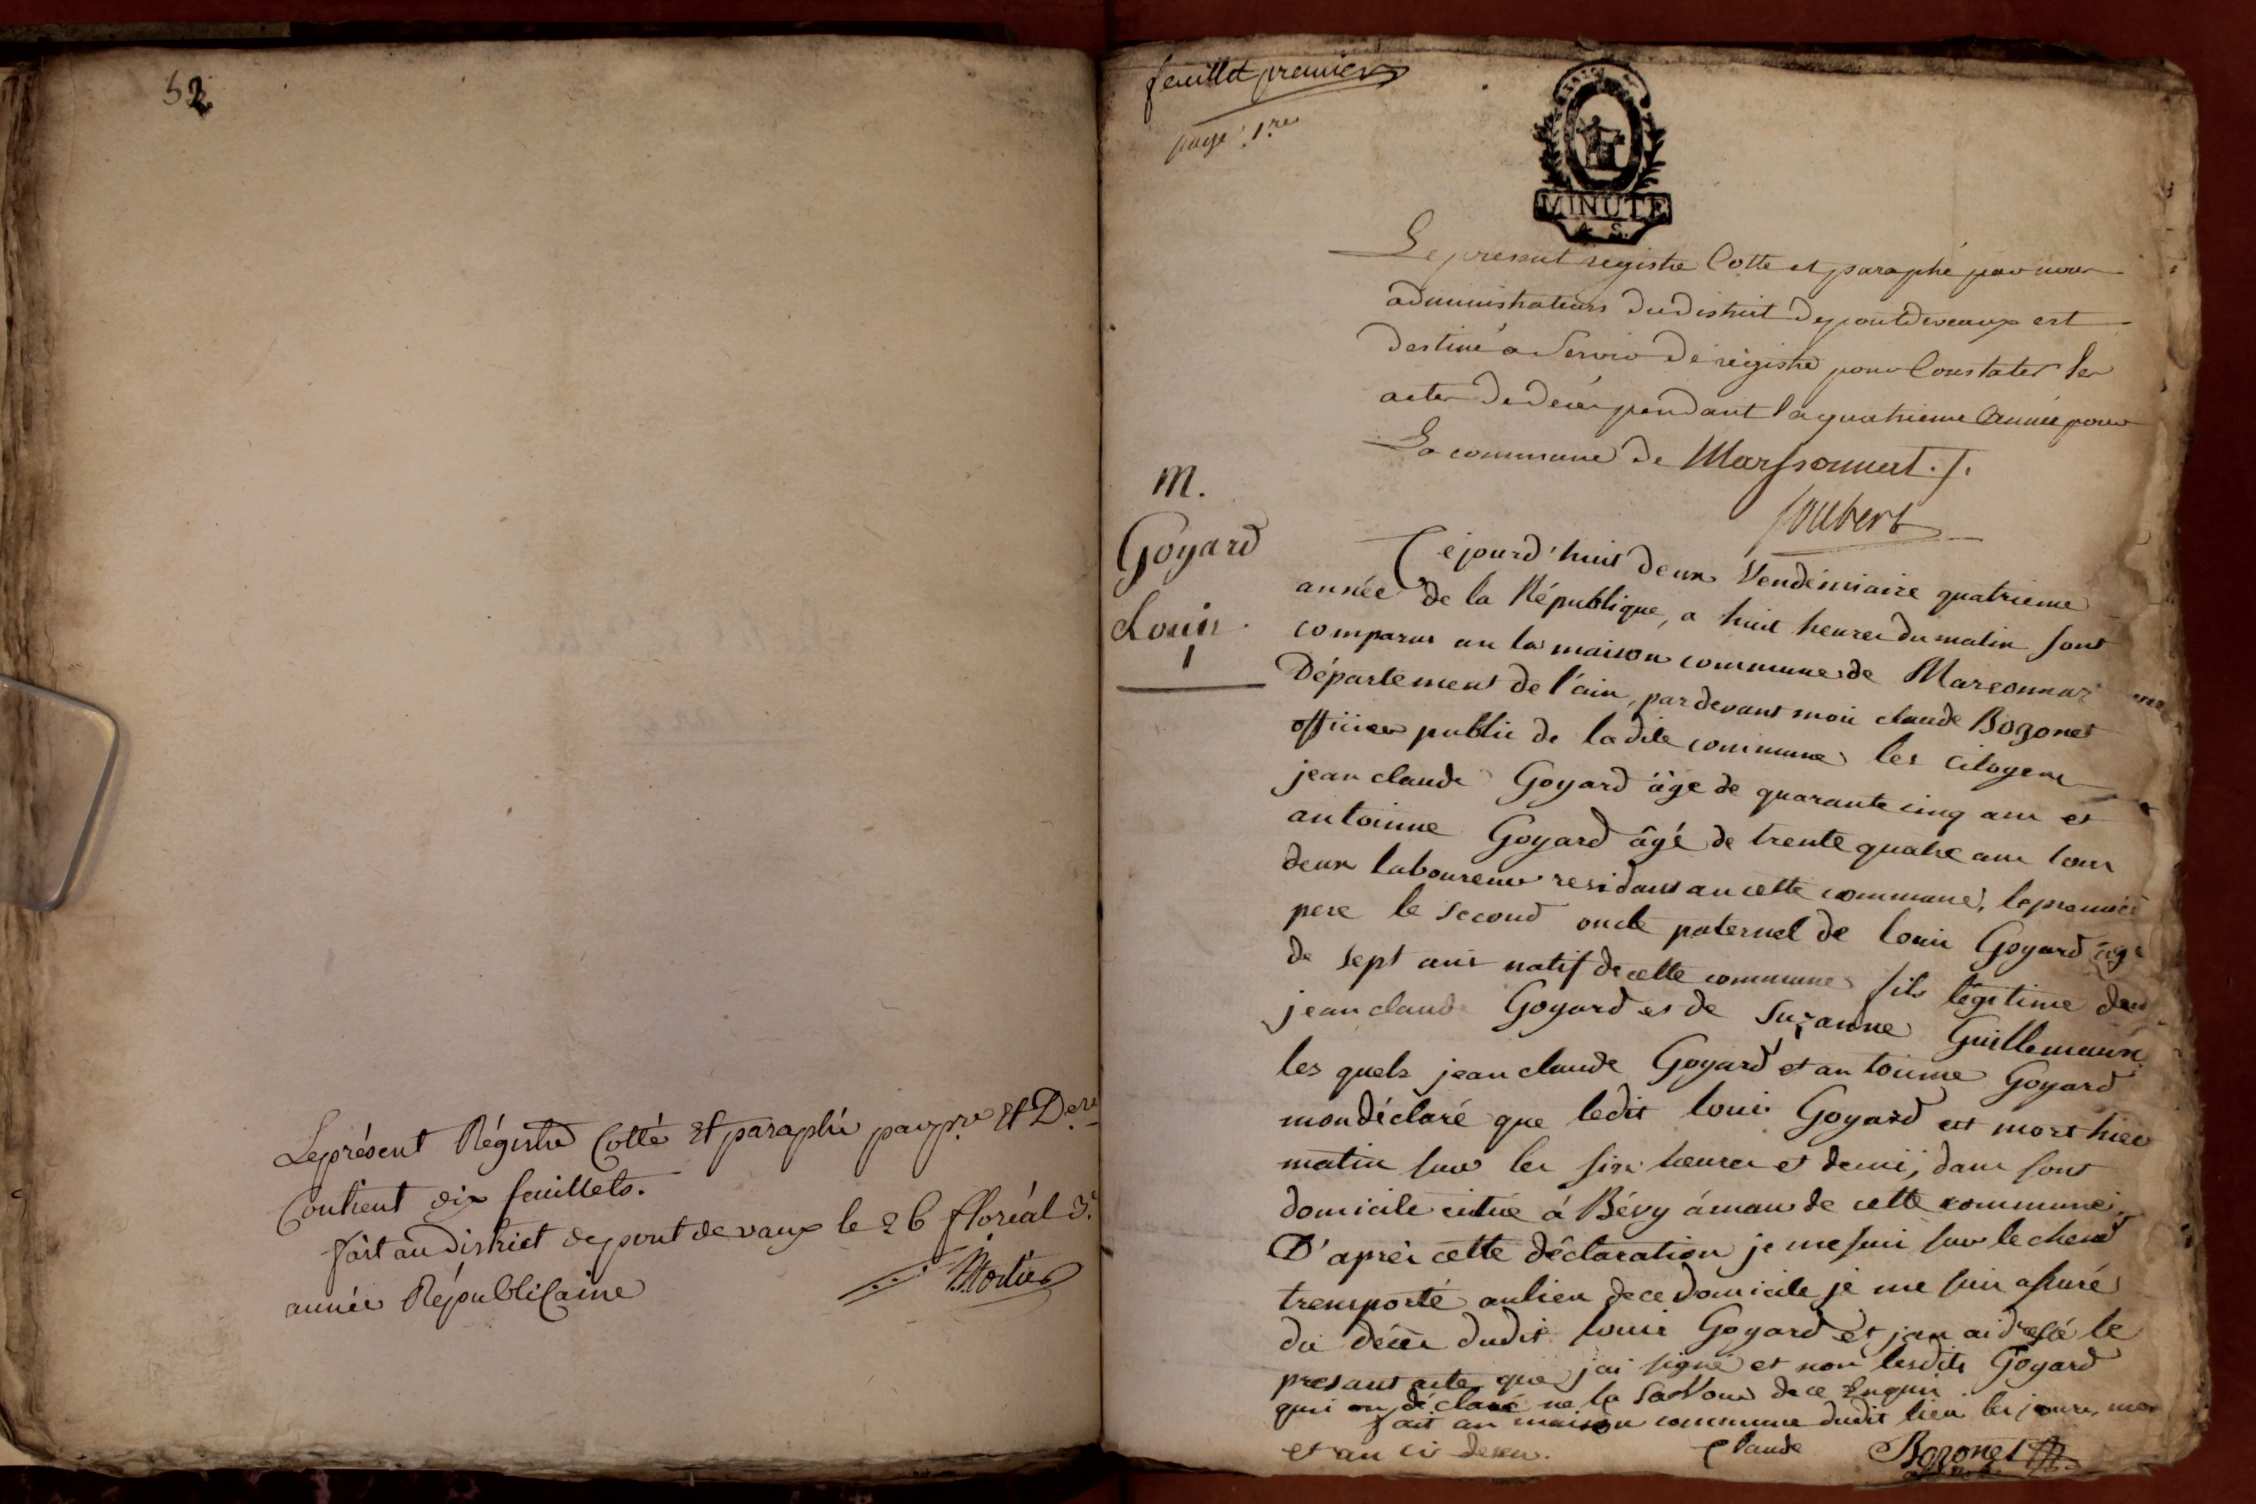 52
Leprésent Régistre Cotté Et paraphé par pre. Et Dere.
Contient dix feuillets.
fait au District de pont de vaux le 26 floréal 3e.
année Républicaine
Mortier
feuillet premier
page 1re
MINUTE
Le present registre Cotte et paraphé par nous
administrateurs du District de pontdevaux est
destiné a Servir de régistre pour Constater les
actes de decès pendant la quatrieme année pour
La commune de Marsonnat
Joubert
M.
Goyard
Louis
1
Cejourd'huit deux Vendémiaire quatrieme
année de la République, a huit heures du matin sont
comparus an la maison commune de Marsonnas
Département de l'ain, pardevant moi claude Bozonet
officier public de ladite commune les citoyens
jean claude Goyard âgé de quarante cinq ans et
antoinne Goyard âgé de trente quatre ans tous
deux laboureur residans an cette commune, le premier
pere le second oncle paternel de louis Goyard âgé
de sept ans natif de cette commune fils légitime de
jean claude Goyard et de Suzanne Guillemaux
les quels jean claude Goyard et antoinne Goyard
mon déclaré que ledit louis Goyard est mort hier
matin sur les six heures et demi, dans sont
domicile citué á Bévy ámau de cette commune
D'après cette déclaration je me suis sur le cham
transporté au lieu de ce domicile je me suis assuré
du décès dudit louis Goyard et jan ai dressé le
presant acte que jai signé et non lesdits Goyard
qui on déclaré ne la Savoir de ce Enquis
fait an maison commune dudit lieu les jours, moi
et an ci desu.
Claude Bozonet